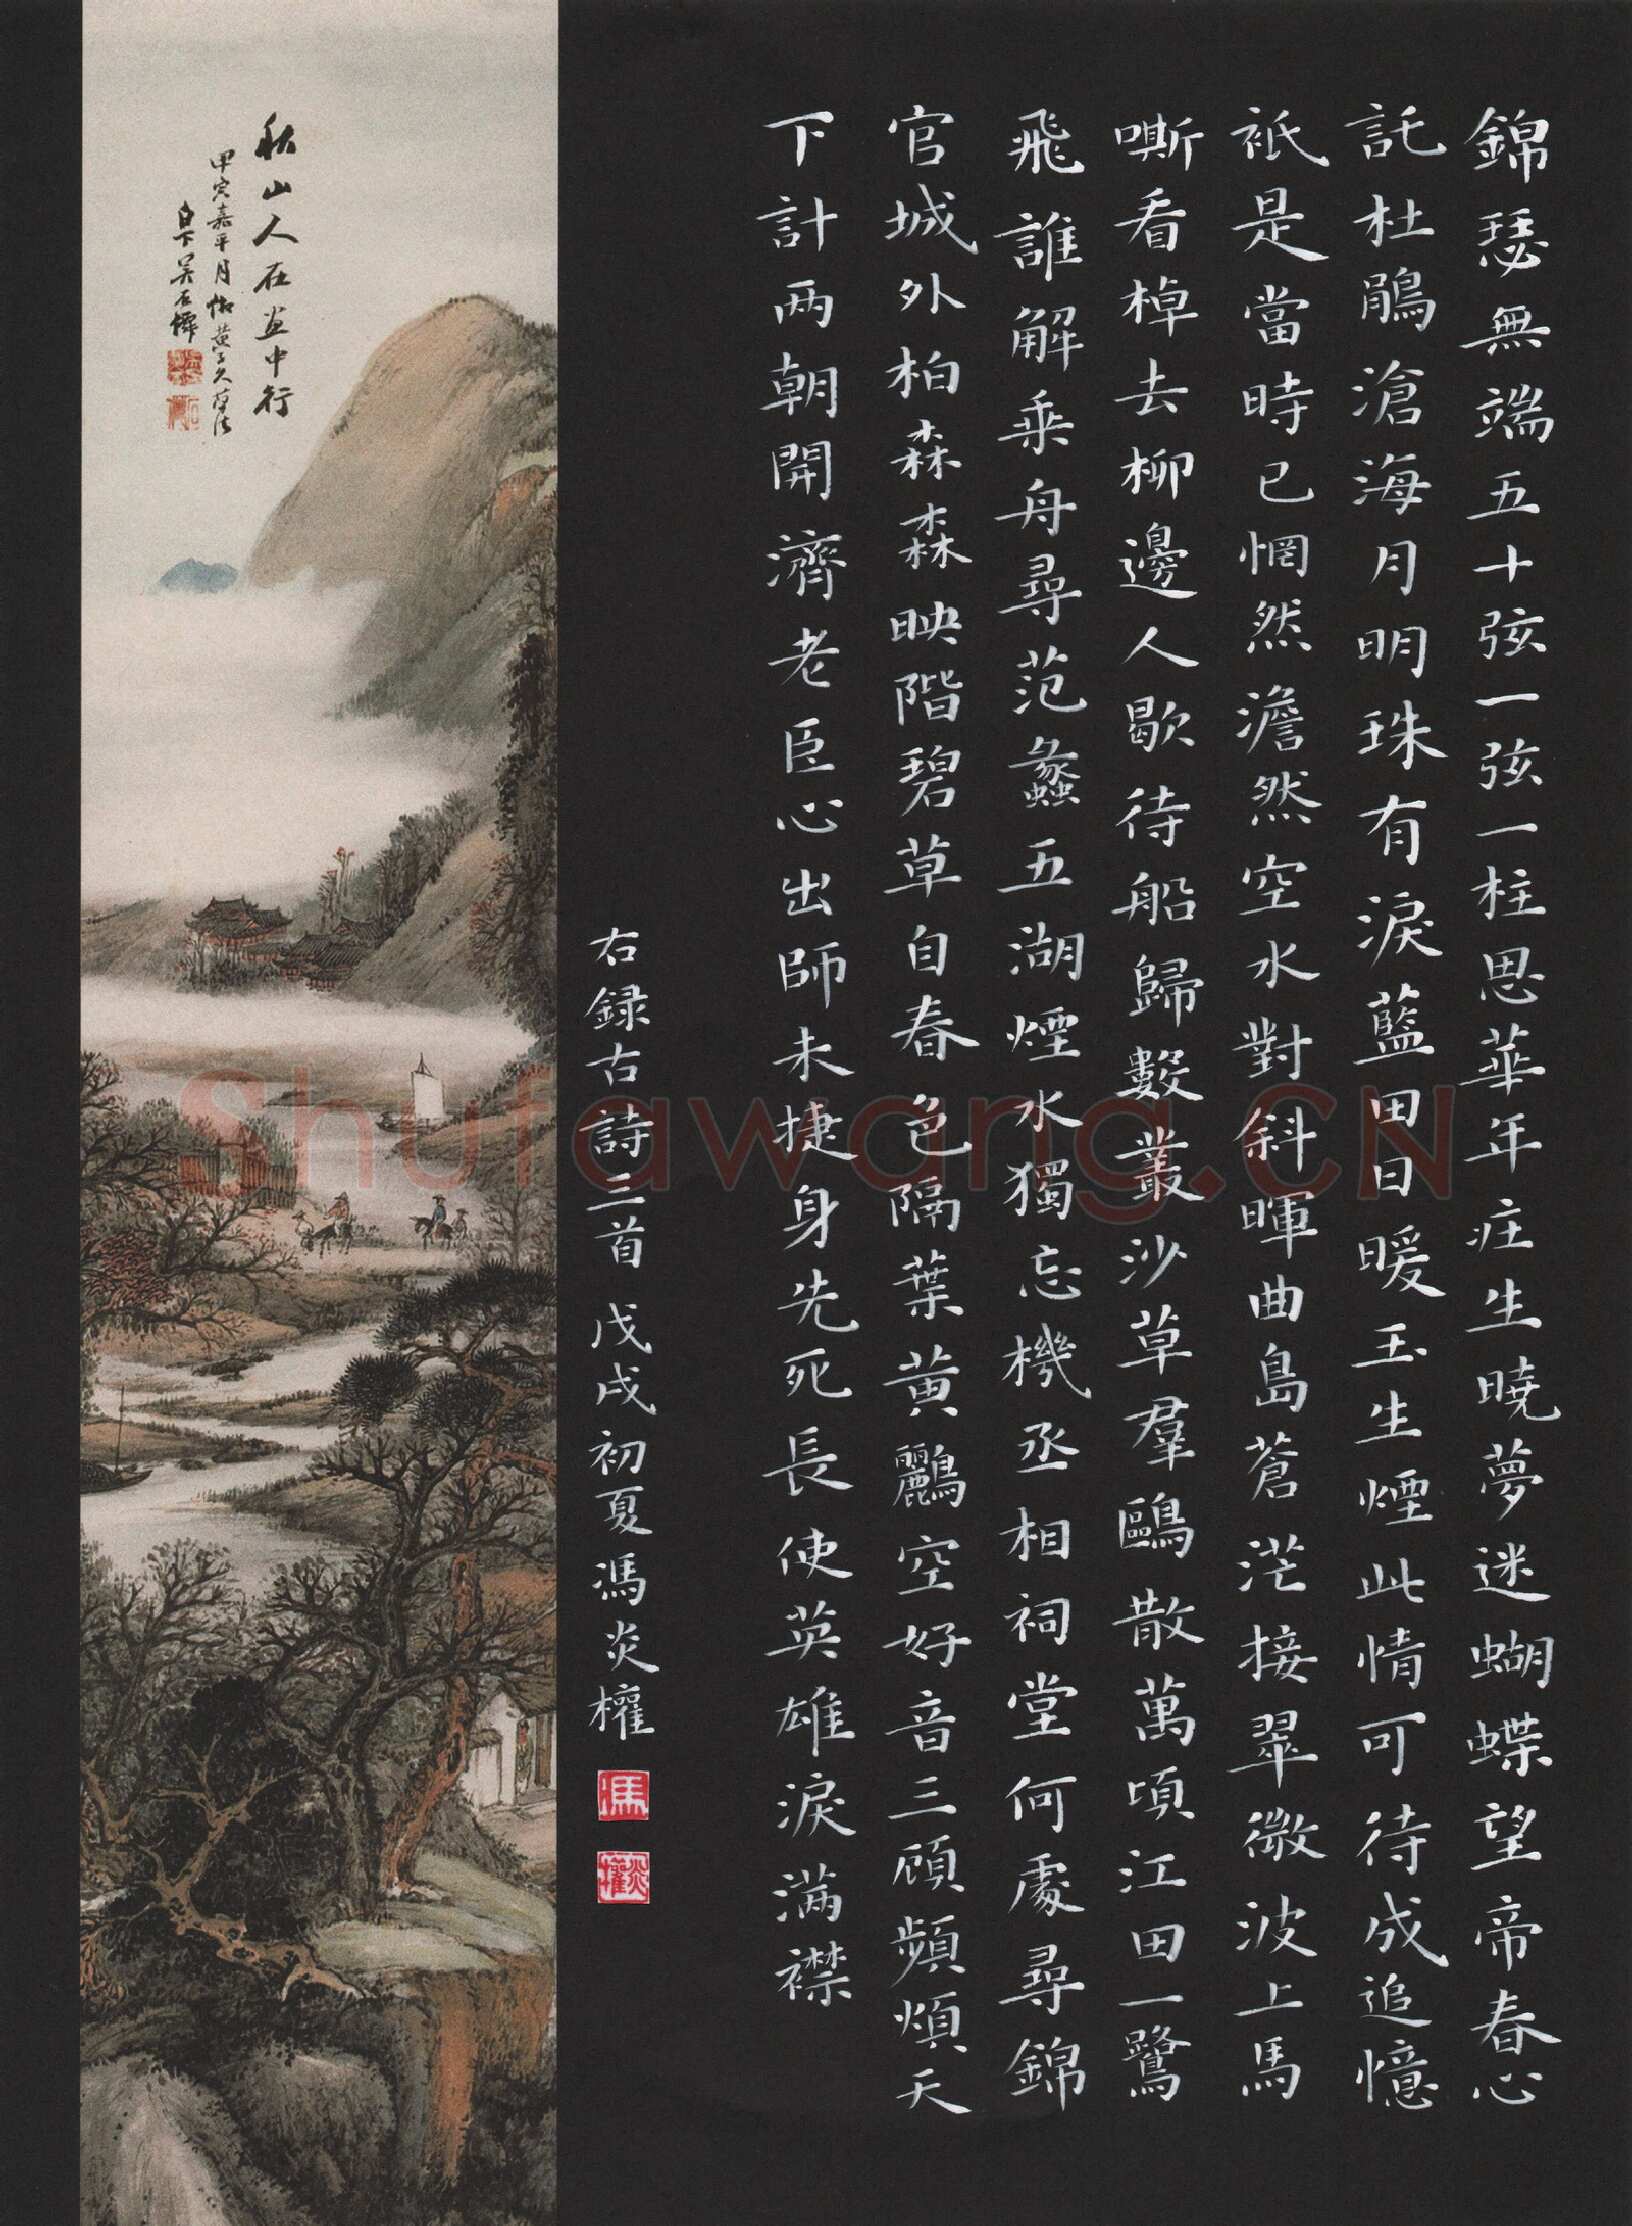 錦瑟無端五十弦一弦一柱思華年庄生曉夢迷蝴蝶望帝春心
託杜鵑滄海月明珠有淚藍田日暖玉生煙此情可待成追憶
祇是當時已惘然澹然空水對斜暉曲島蒼茫接翠微波上馬
嘶看棹去柳邊人歇待船歸數叢沙草羣鷗散萬頃江田一鷺
飛誰解乘舟尋范蠡五湖煙水獨忘機丞相祠堂何處尋錦
官城外柏森森映階碧草自春色隔葉黄鸝空好音三顧頻煩天
下計两朝開濟老臣心出師未捷身先死長使英雄淚满襟
右録古詩三首 戊戌初夏馮炎權
馮
炎權
秋山人在画中行
甲寅嘉平月倣黄子久筆法
白下吴石僊
Shufawang.CN